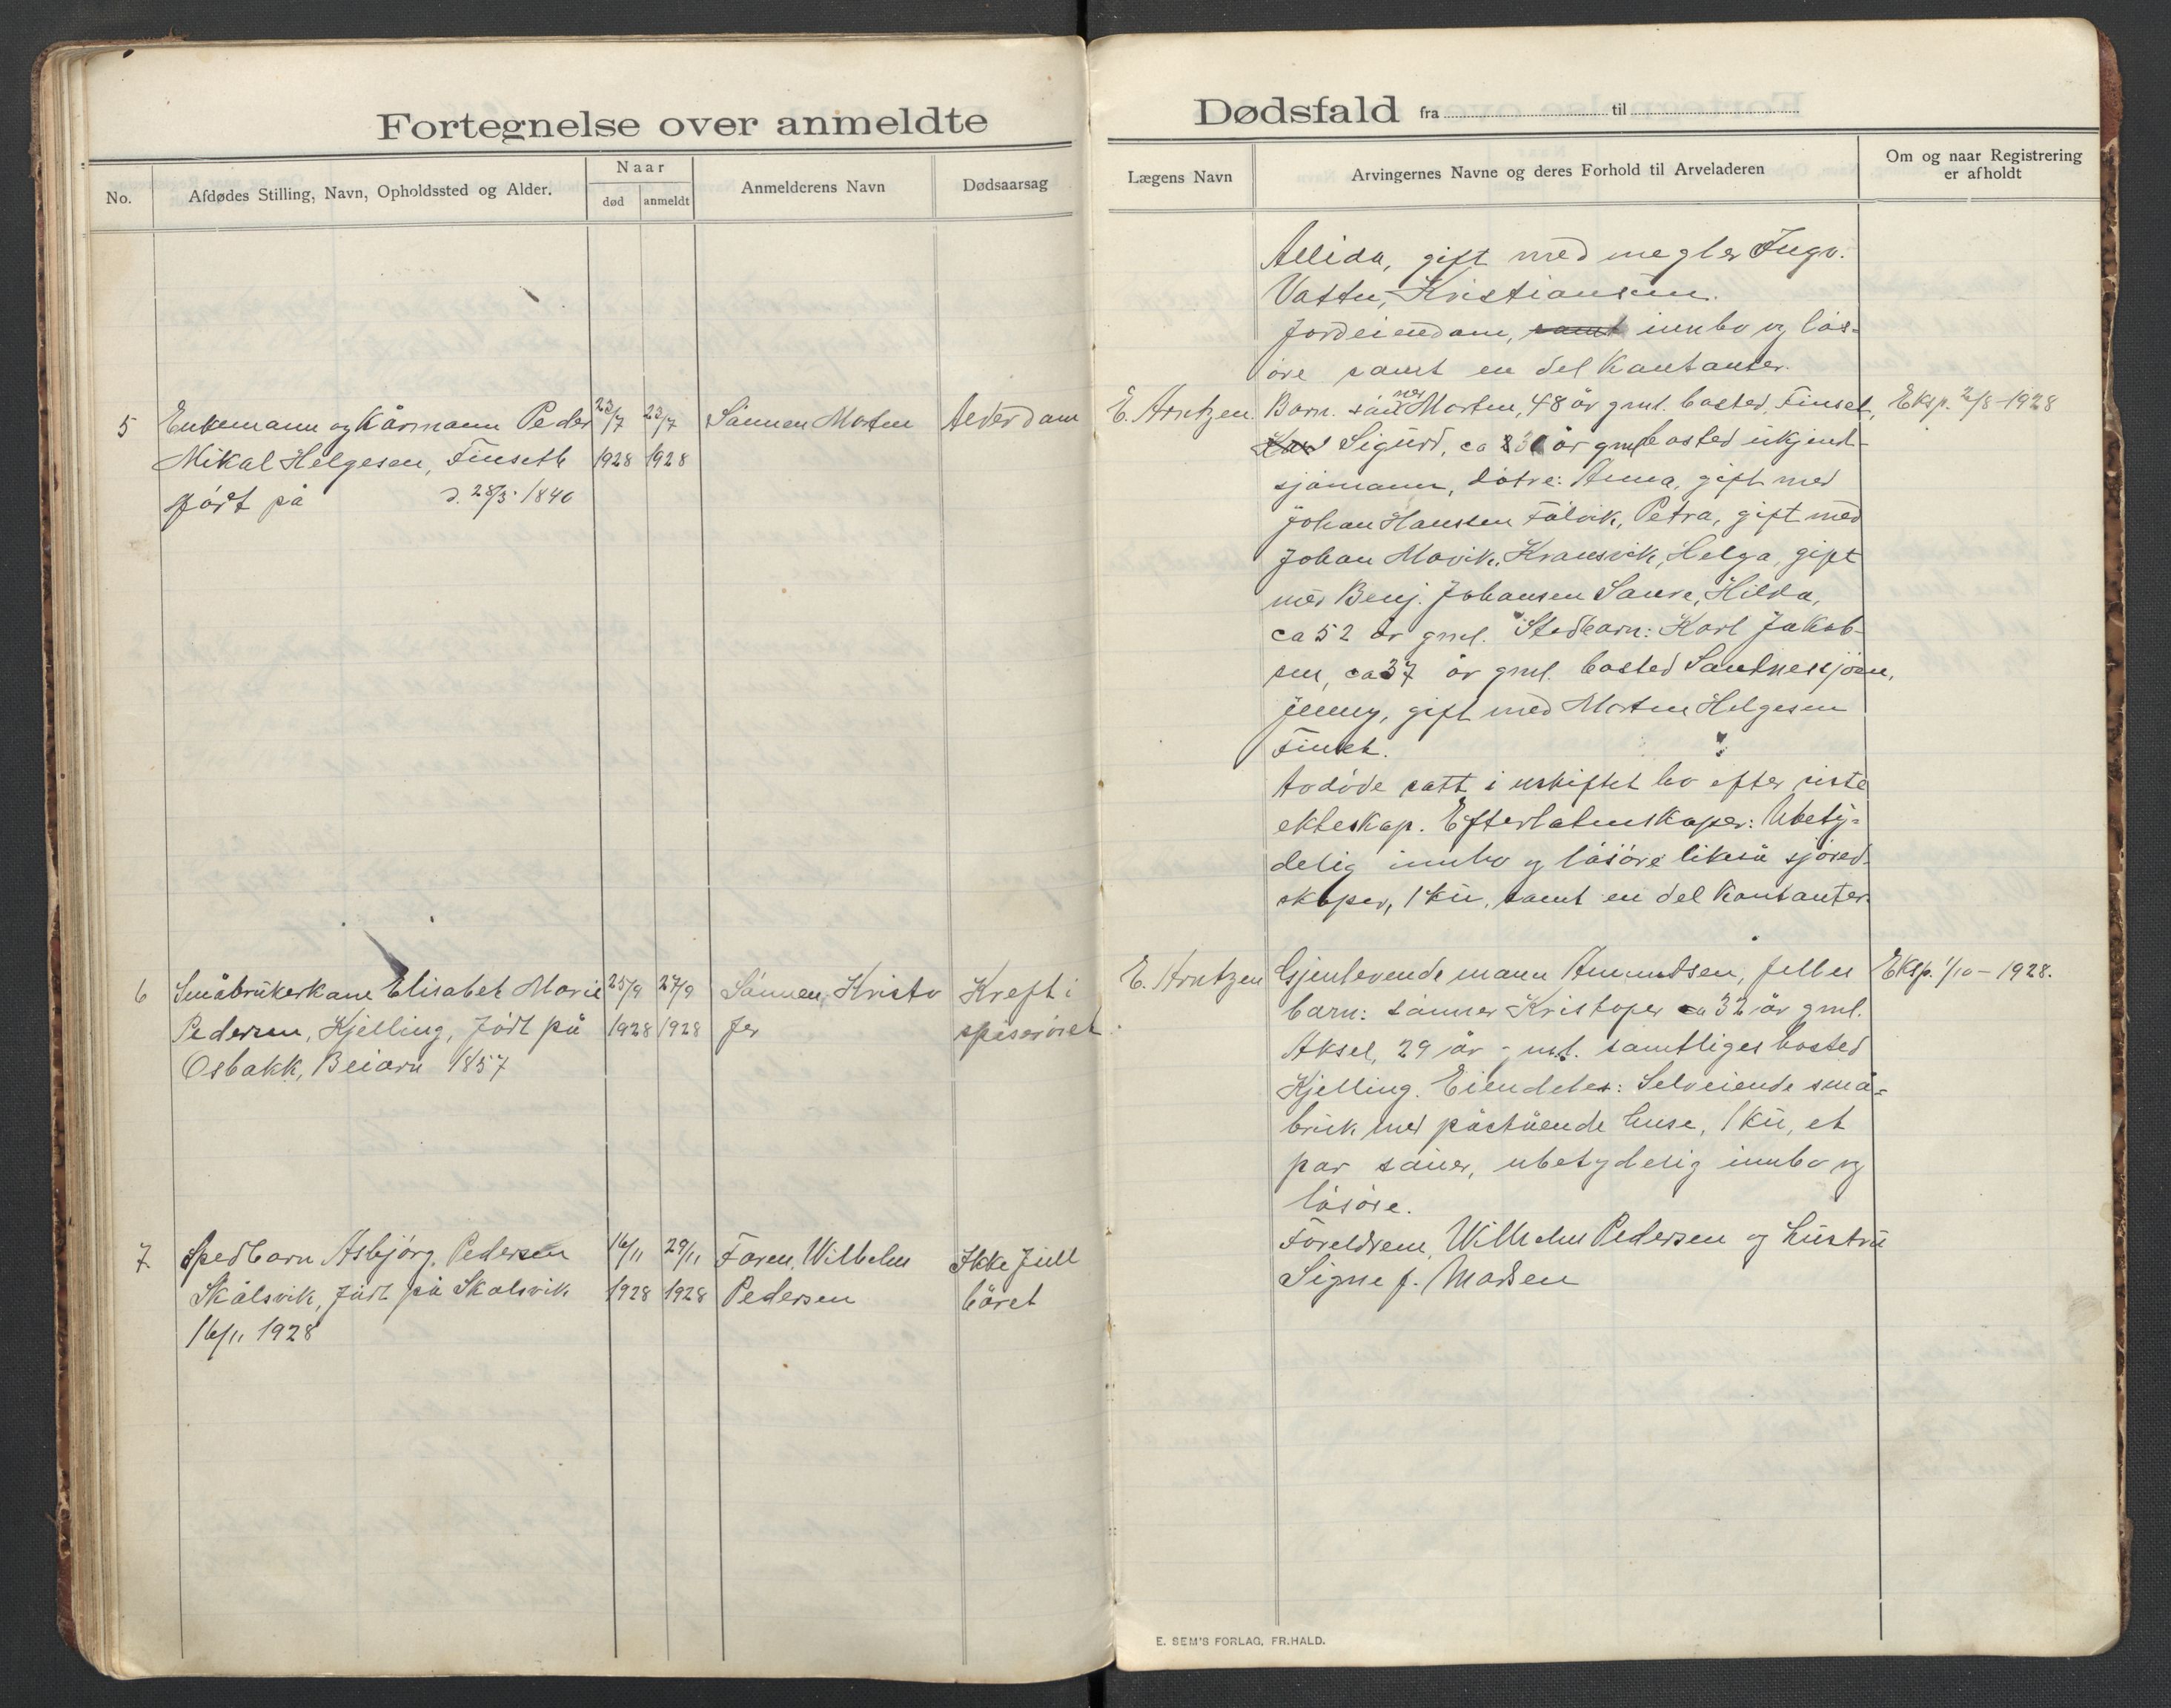 Fortegnelse over anmeldte
No.
Afdødes Stilling, Navn, Opholdssted og Alder.
Naar
død
anmeldt
Anmelderens Navn
Dødsaarsag
5
Enkemann og Kårmann Peder
Mikal Helgesen, Finseth
født på d. 28/3. 1840
23/7 1928
23/7 1928
Sønnen Morten
Alderdom
6
Småbrukerkone Elisabet Marie
Pedersen, Kjelling, født på
Osbakk, Beiarn 1857
25/9 1928
27/9 1928
Sønnen, Kristo
fer
Kreft i
spiserøret
7.
Spedbarn Asbjørg Pedersen
Skålsvik, født på Skålsvik
16/11 1928
16/11 1928
29/11 1928
Faren, Wilhelm
Pedersen
Ikke full
båret
Dødsfald fra til
Lægens Navn
Arvingernes Navne og deres Forhold til Arveladeren
Om og naar Registrering
er afholdt
Allida, gift med megler Ingv.
Vatten, Kristiansund.
Jordeiendom, samt innbo og løs-
øre samt en del Kontanter.
E. Arntzen.
Barn: sønner Morten, 48 år gml. bosted, Finset,
Sigurd, ca 30 år gml bosted ukjend-
sjømann, døtre: Anna, gift med
Johan Hansen Følvik, Petra, gift med
Johan Movik, Kransvik, Helga, gift
med Benj. Johansen Saure, Hilda,
ca 52 år gml. Stedbarn: Karl Jakob-
sen, ca 37 år gml. bosted Sandnessjøen,
Jenny, gift med Morten Helgesen
Finset.
Avdøde satt i uskiftet bo efter siste
ekteskap. Efterlatenskaper: Ubety-
delig innbo og løsøre likeså sjøred-
skaper, 1 ku, samt en del Kontanter.
Eksp. 2/8-1928
E. Arntzen
Gjenlevende mann Amundsen, felles
barn: sønner Kristofer ca 32 år gml.
Aksel, 29 år gml. samtliges bosted
Kjelling. Eiendeler: Selveiende små-
bruk med påstående huse, 1 ku, et
par sauer, ubetydelig innbo og
løsøre.
Eksp. 1/10-1928.
Foreldrene, Wilhelm Pedersen og hustru
Signe f. Madsen
E. SEM'S FORLAG, FR.HALD.